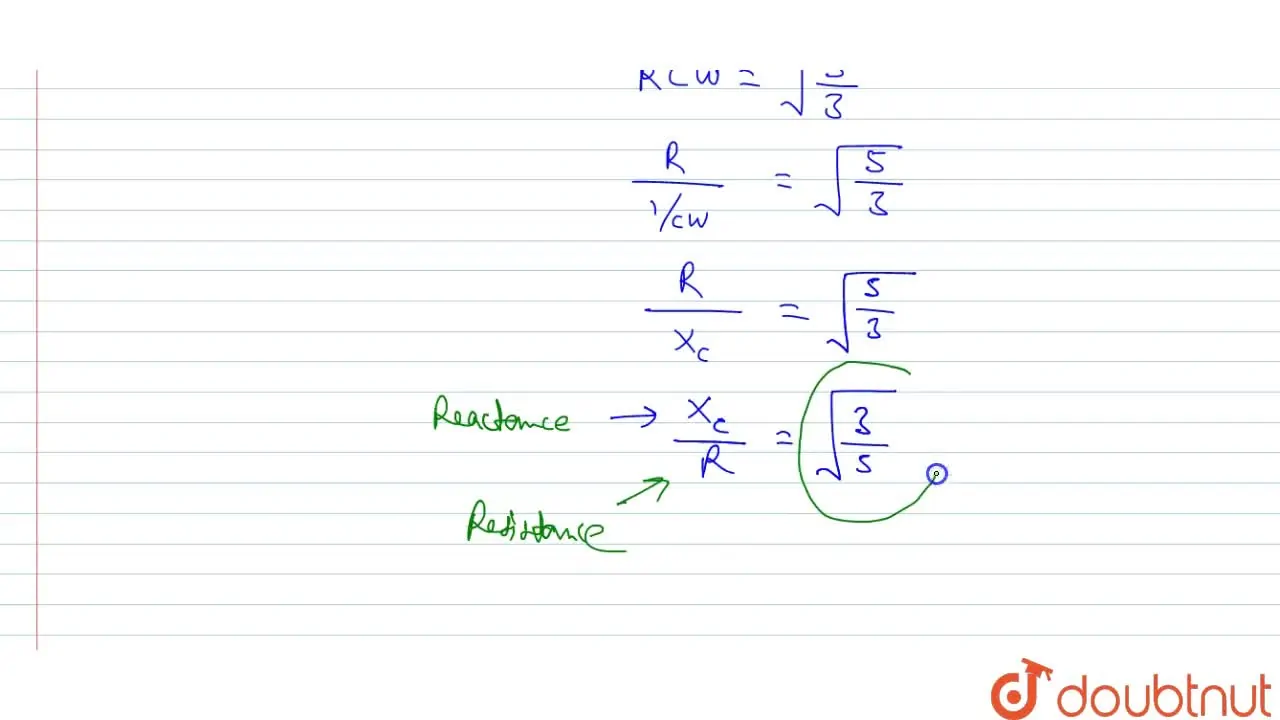 RCW = √5/3
R / 1/CW = √5/3
R / Xc = √5/3
Reactance → Xc / R = √3/5
Resistance
doubtnut